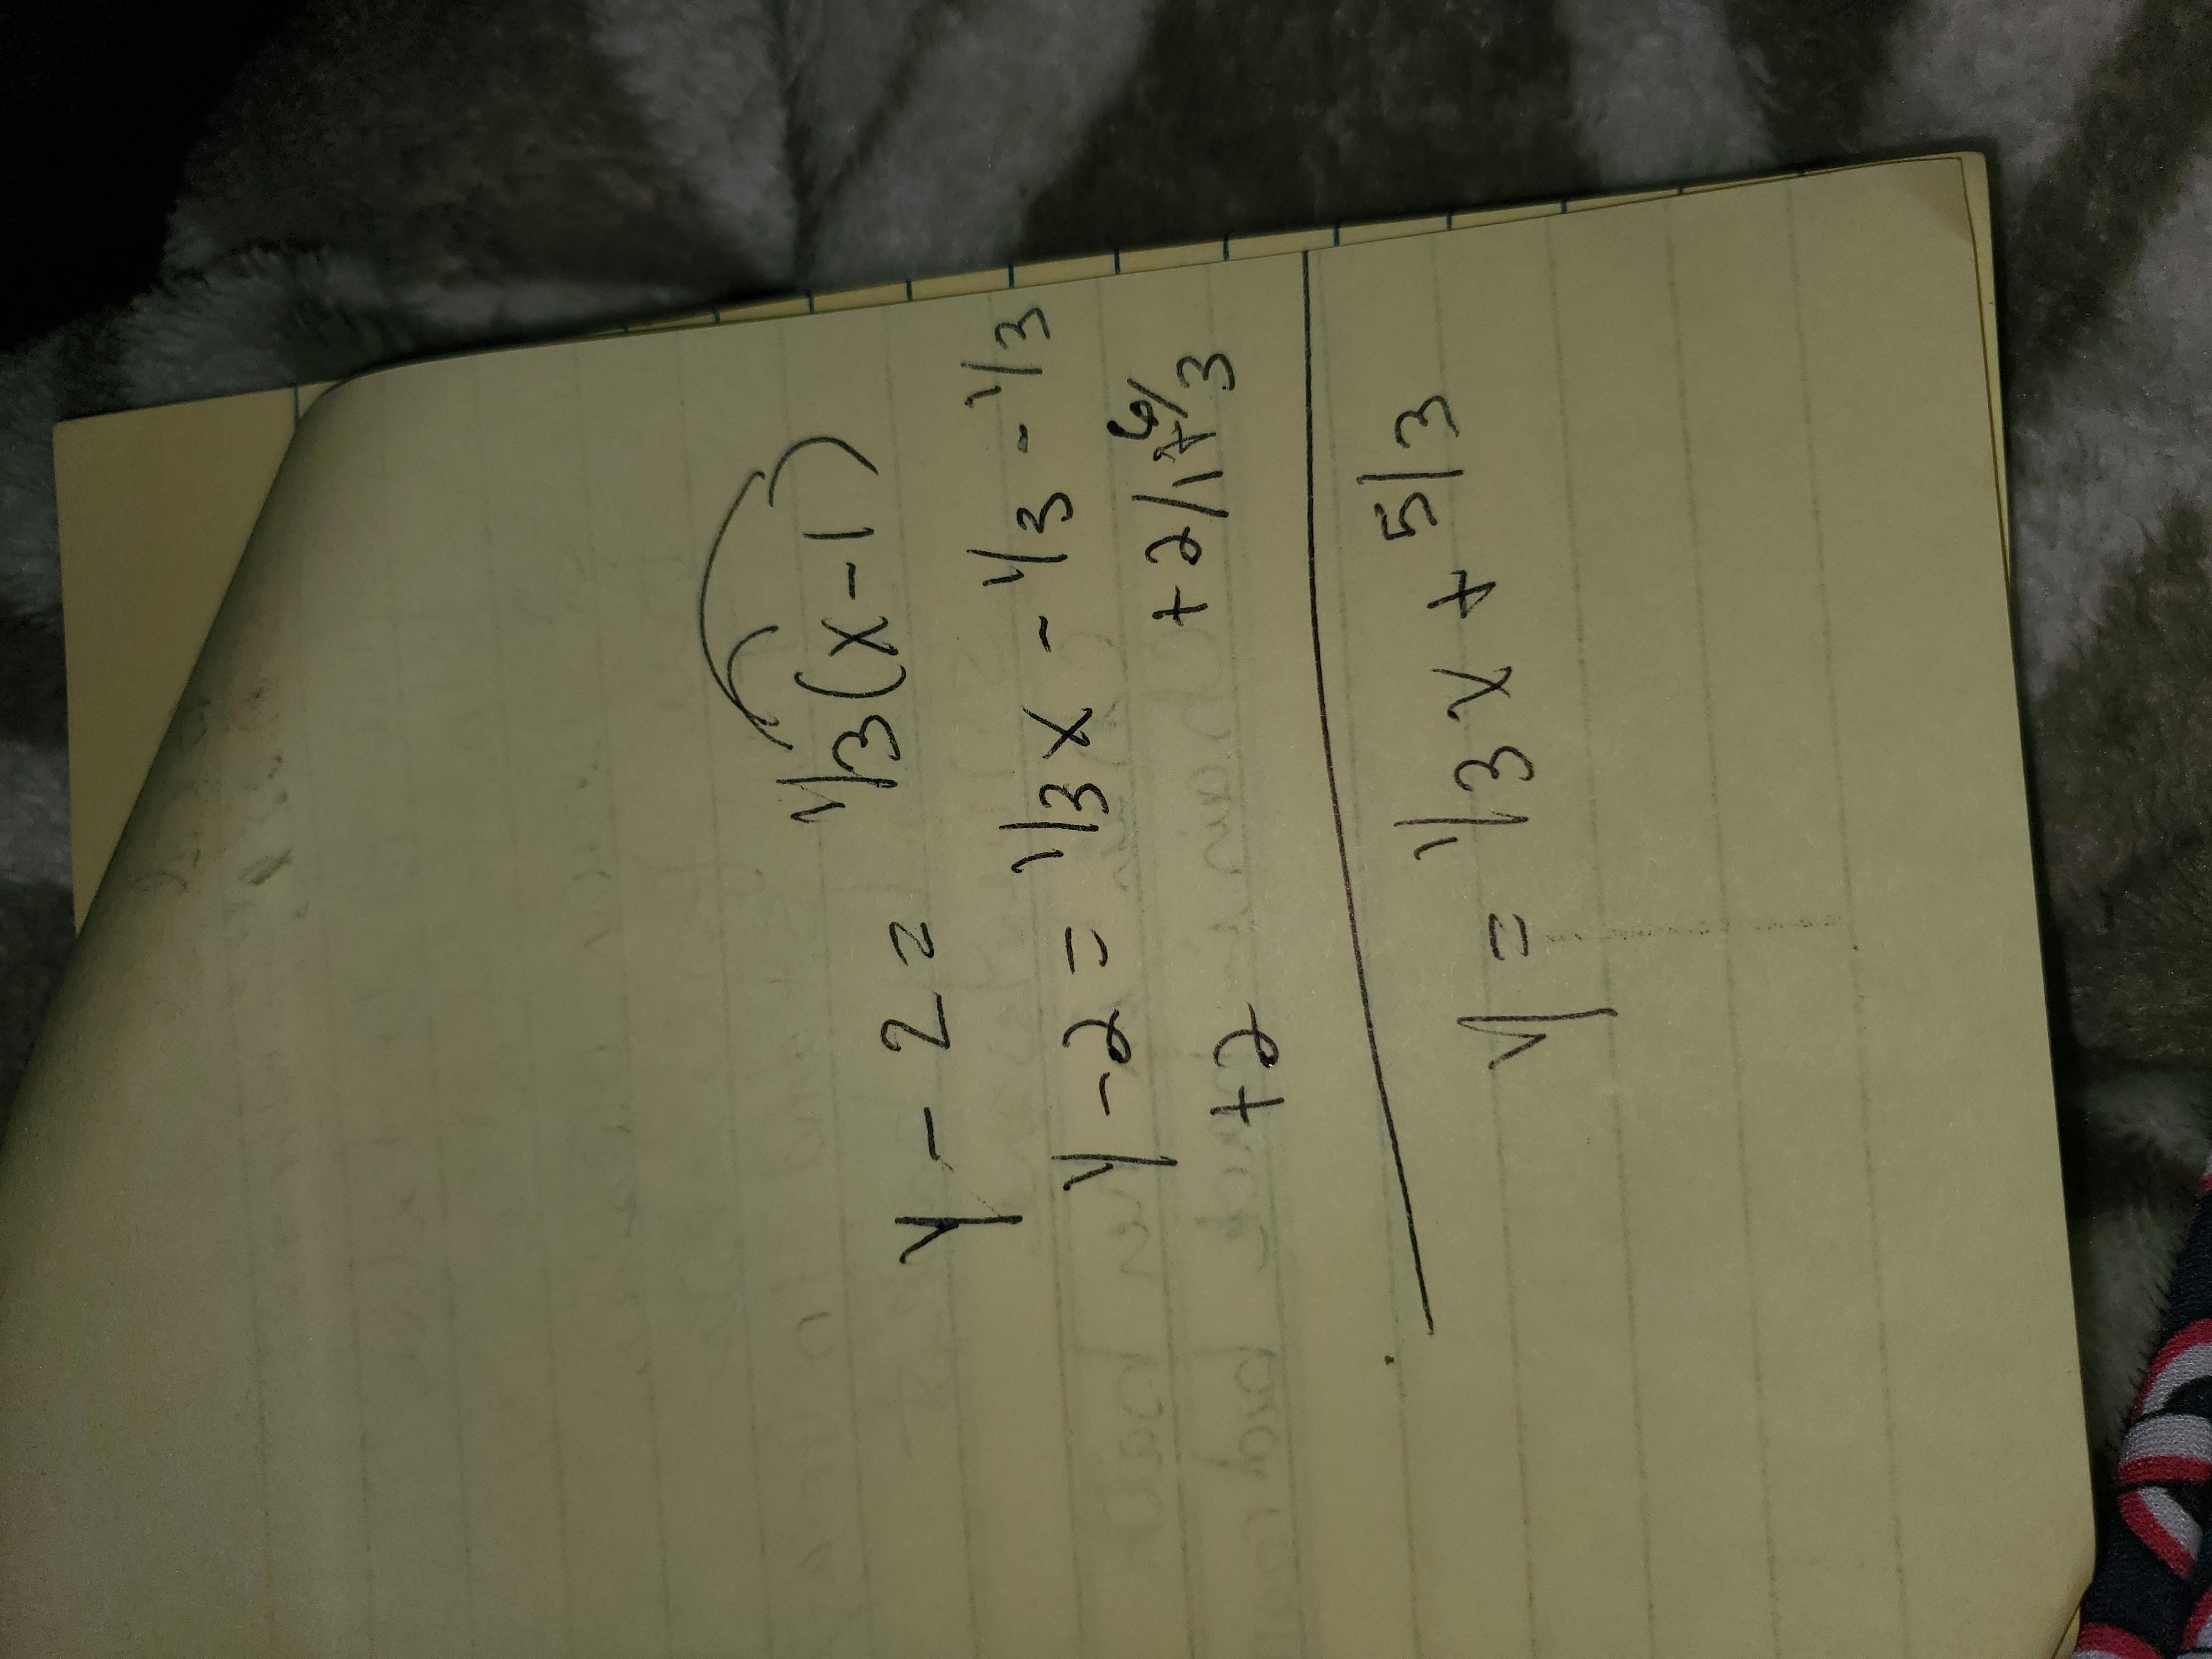 y - 2 = 1/3(x-1)
y -2 = 1/3x - 1/3 - 1/3
+2 +2/1 + 6/3
y = 1/3x + 5/3